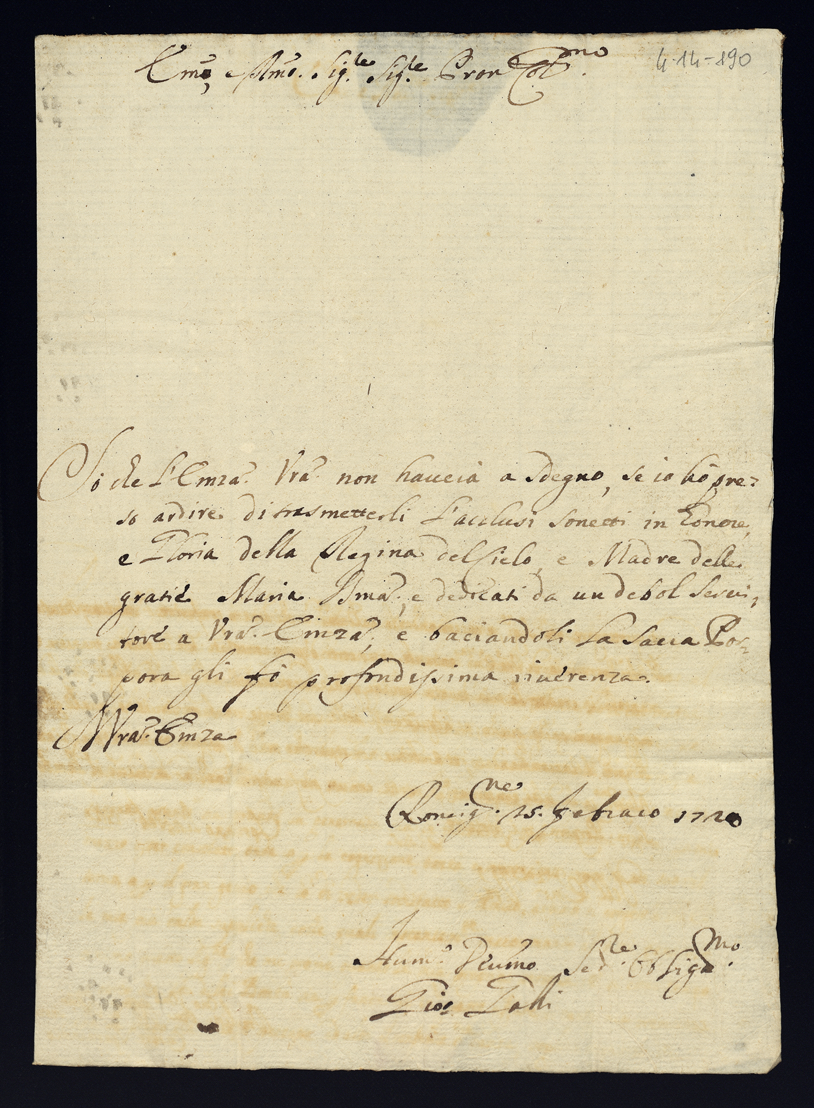 Em̃o, e Rm̃o. Sig.re Sig.re Pron Col.mo
4-14-190
Sò che L'Emza. Vra. non hauerà a sdegno, se io hò pre=
so ardire di trasmetterli l'acclusi sonetti in honore,
e Gloria della Regina del Cielo, e Madre delle
gratie Maria SSma., e dedicati da un debol serui,
tore a Vra. Emza., e baciandoli La Sacra Por=
pora gli fò profondissima riuerenza.
Vra. Emza
Roncig.ne 25. febraro 1720
Hum. Deumo. Se.re Obblig.mo
Gio: